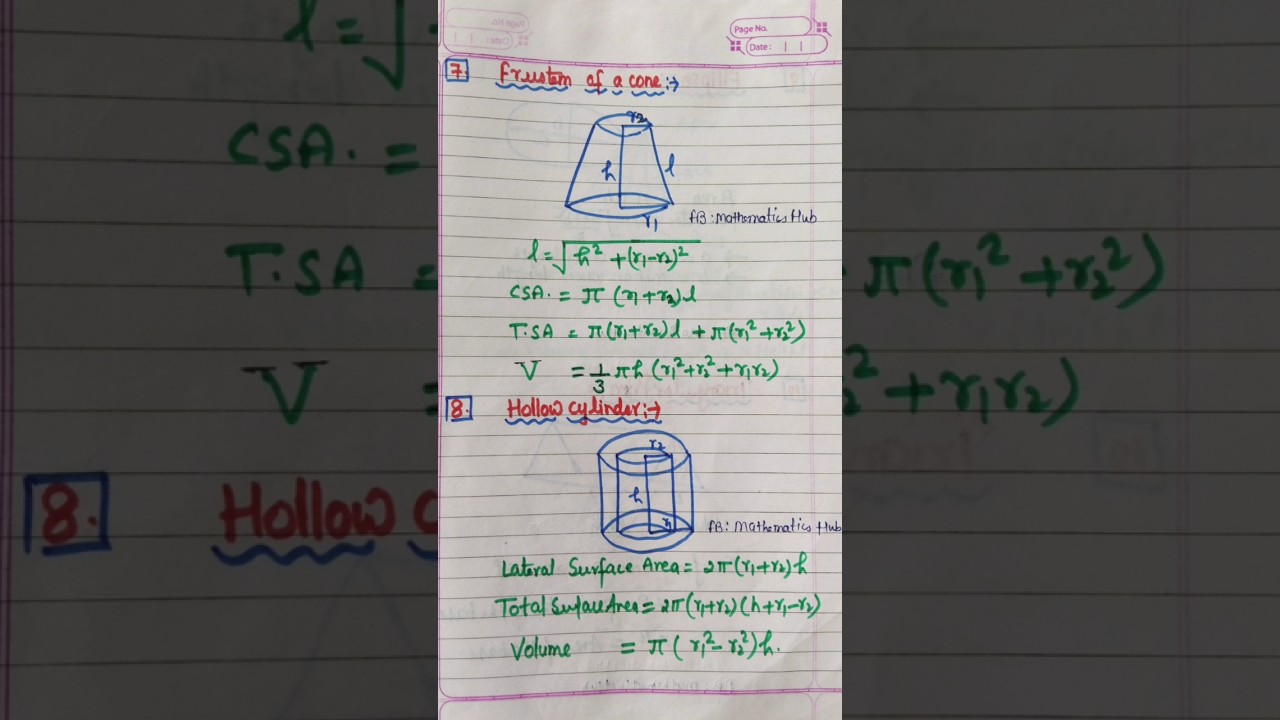 Page No.
Date :
7. Frustem of a cone :→
r2
h l
r1
AB : Mathematics Hub
l = √h² + (r1-r2)²
CSA. = π (r1+r2)l
T.SA = π(r1+r2)l + π(r1²+r2²)
V = 1/3 πh (r1²+r2²+r1r2)
8. Hollow cylinder :→
r2
h
r1
AB : Mathematics Hub
Lateral Surface Area = 2π(r1+r2)h
Total Surface Area = 2π(r1+r2)(h+r1-r2)
Volume = π( r1²- r2²)h.